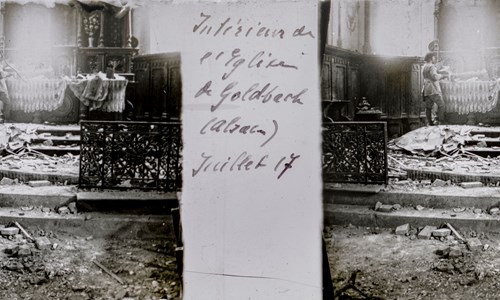 Intérieur de
l'Eglise
de Goldbach
(Alsace)
Juillet 17